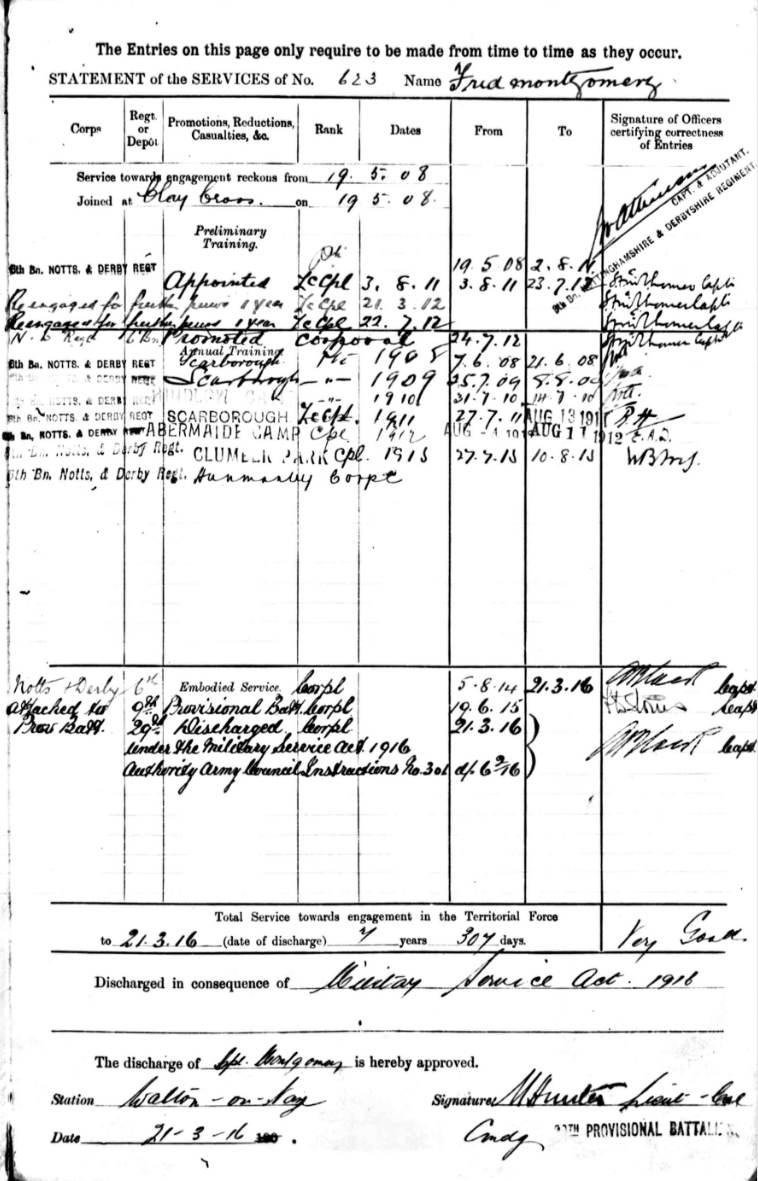 The Entries on this page only require to be made from time to time as they occur.
STATEMENT of the SERVICES of No. 623 Name Fred Montgomery
Corps Regt. or Depôt Promotions, Reductions, Casualties, &c. Rank Dates From To Signature of Officers certifying correctness of Entries
Service towards engagement reckons from 19. 5. 08
Joined at Clay Cross. on 19 5 08.
CAPT. & ADJUTANT.
NOTTINGHAMSHIRE & DERBYSHIRE REGIMENT.
Preliminary Training.
6th Bn. NOTTS. & DERBY REGT Pte 19.5.08 2.8.11
Appointed L/Cpl 3. 8. 11 3.8.11 23.7.12 Capt
Reengaged for further 1 year L/Cpl 21. 3. 12 Capt
Reengaged for further 1 year L/Cpl 22. 7. 12 Capt
Promoted Corporal 24.7.12 Capt
Annual Training
6th Bn. NOTTS. & DERBY REGT Scarborough Pte 1908 7.6.08 21.6.08
NOTTS. & DERBY REGT Scarborough -"- 1909 25.7.09 8.8.09
NOTTS. & DERBY REGT CAMP -"- 1910 31.7.10
6th Bn. NOTTS. & DERBY REGT SCARBOROUGH L/Cpl. 1911 27.7.11 AUG 13 1911
6th Bn. NOTTS. & DERBY REGT ABERMAIDE CAMP Cpl 1912 AUG 191 AUG 17 1912 E.A.D.
Bn. Notts, & Derby Regt. CLUMBER PARK Cpl. 1913 27.7.13 10.8.13
6th Bn. Notts, & Derby Regt. Hunmanby Corpl
Notts & Derby 6th Embodied Service. Corpl 5.8.14 21.3.16 Capt
Attached to 9th Provisional Batt. Corpl 19.6.15 Capt
Prov Batt. 29th Discharged Corpl 21.3.16
under the Military Service Act 1916 Capt
Authority Army Council Instructions No. 301 d/
Total Service towards engagement in the Territorial Force
to 21.3.16 (date of discharge) 7 years 307 days. Very Good.
Discharged in consequence of Military Service Act. 1916
The discharge of Cpl. Montgomery is hereby approved.
Station Walton-on-Naze Signature Hunter Lieut-Col
Date 21-3-16 190 . Cmdg PROVISIONAL BATTALION.